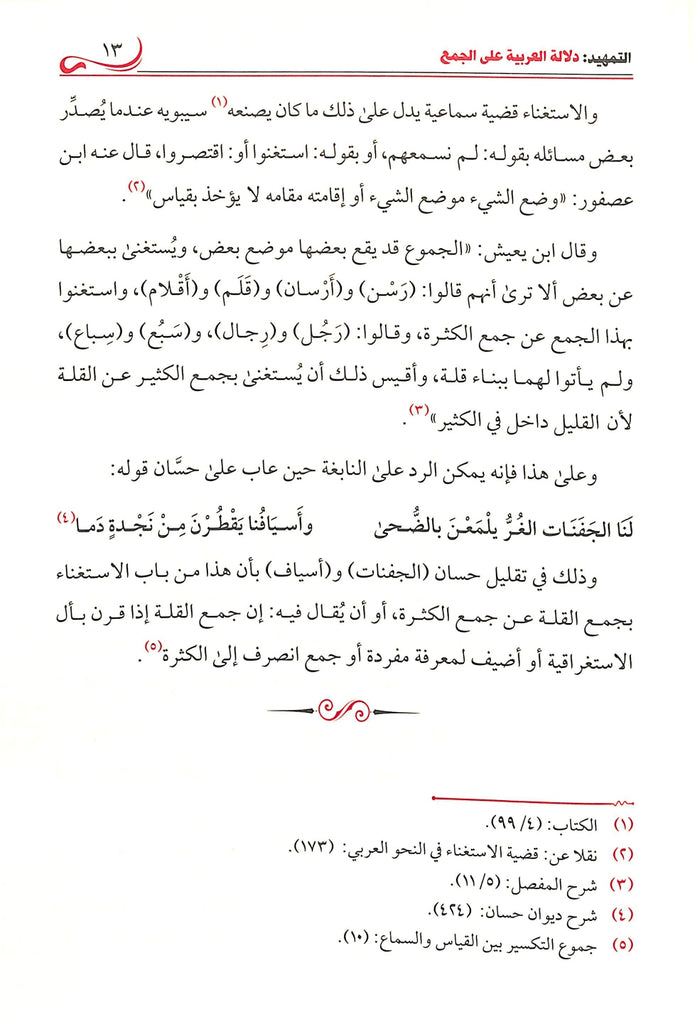 التمهيد: دلالة العربية على الجمع ١٣
والاستغناء قضية سماعية يدل علىٰ ذلك ما كان يصنعه(١) سيبويه عندما يُصدِّر
بعض مسائله بقوله: لم نسمعهم، أو بقوله: استغنوا أو: اقتصروا، قال عنه ابن
عصفور: «وضع الشيء موضع الشيء أو إقامته مقامه لا يؤخذ بقياس»(٢).
وقال ابن يعيش: «الجموع قد يقع بعضها موضع بعض، ويُستغنىٰ ببعضها
عن بعض ألا ترىٰ أنهم قالوا: (رَسْن) و(أَرْسان) و(قَلَم) و(أَقْلام)، واستغنوا
بهذا الجمع عن جمع الكثرة، وقالوا: (رَجُل) و(رِجال)، و(سَبُع) و(سِباع)،
ولم يأتوا لهما ببناء قلة، وأقيس ذلك أن يُستغنىٰ بجمع الكثير عن القلة
لأن القليل داخل في الكثير»(٣).
وعلىٰ هذا فإنه يمكن الرد علىٰ النابغة حين عاب علىٰ حسَّان قوله:
لَنَا الجَفَنَات الغُرُّ يلْمَعْنَ بالضُّحىٰ وأَسيَافُنا يَقْطُرْنَ مِنْ نَجْدةٍ دَما(٤)
وذلك في تقليل حسان (الجفنات) و(أسياف) بأن هذا من باب الاستغناء
بجمع القلة عن جمع الكثرة، أو أن يُقال فيه: إن جمع القلة إذا قرن بأل
الاستغراقية أو أضيف لمعرفة مفردة أو جمع انصرف إلىٰ الكثرة(٥).
(١) الكتاب: (٤/ ٩٩).
(٢) نقلا عن: قضية الاستغناء في النحو العربي: (١٧٣).
(٣) شرح المفصل: (٥/ ١١).
(٤) شرح ديوان حسان: (٤٢٤).
(٥) جموع التكسير بين القياس والسماع: (١٠).